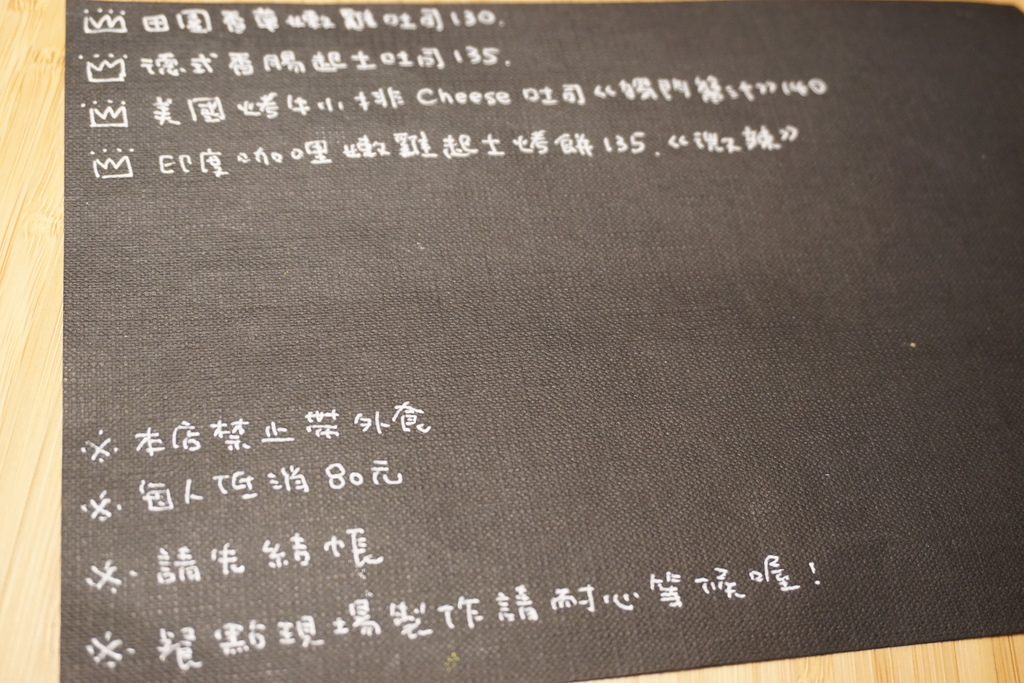 田園香草嫩雞吐司 130.
德式香腸起士吐司 135.
美國烤牛小排 Cheese 吐司 《熱門餐st》 140
印度咖哩嫩雞起士烤餅 135. 《微辣》
※ 本店禁止帶外食
※ 每人低消 80元
※ 請先結帳
※ 餐點現場製作請耐心等候喔!